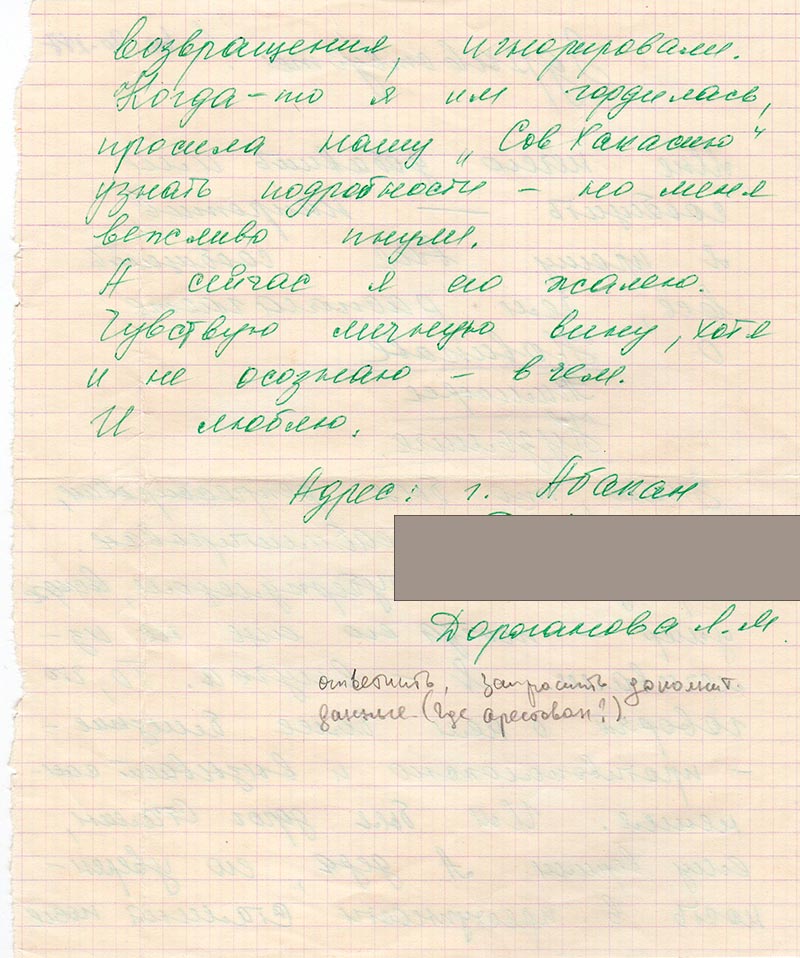 возвращения, игнорировали.
Когда-то я им гордилась,
просила нашу „Сов Хакасию"
узнать подробности – но меня
вежливо пнули.
А сейчас я его жалею.
Чувствую личную вину, хотя
и не осознаю – в чем.
И люблю.
Адрес: г. Абакан
Доржанова Л.М.
ответить, запросить дополнит.
данные (где арестован?)